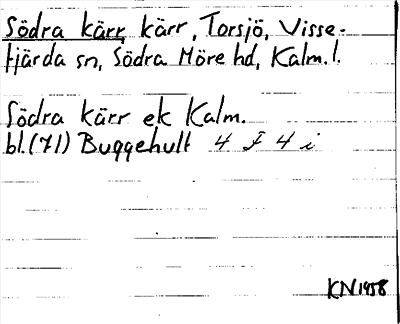 Södra kärr, kärr, Torsjö, Visse-
fjärda sn, Södra Möre hd, Kalm. l.
Södra kärr ek Kalm.
bl. (71) Buggehult 4 F 4 i
KN 1958